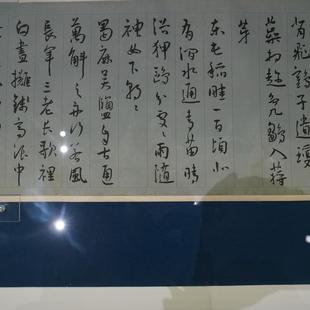 背飛鶴子遺瓊
蕊相趁鳧雛入蔣
芽
東屯稻畦一百頃北
有澗水通青苗晴
浴狎鷗分處々雨隨
神女下朝々
蜀麻吳鹽自古通
萬斛之舟行若風
長年三老長歌裡
白晝攤錢高浪中